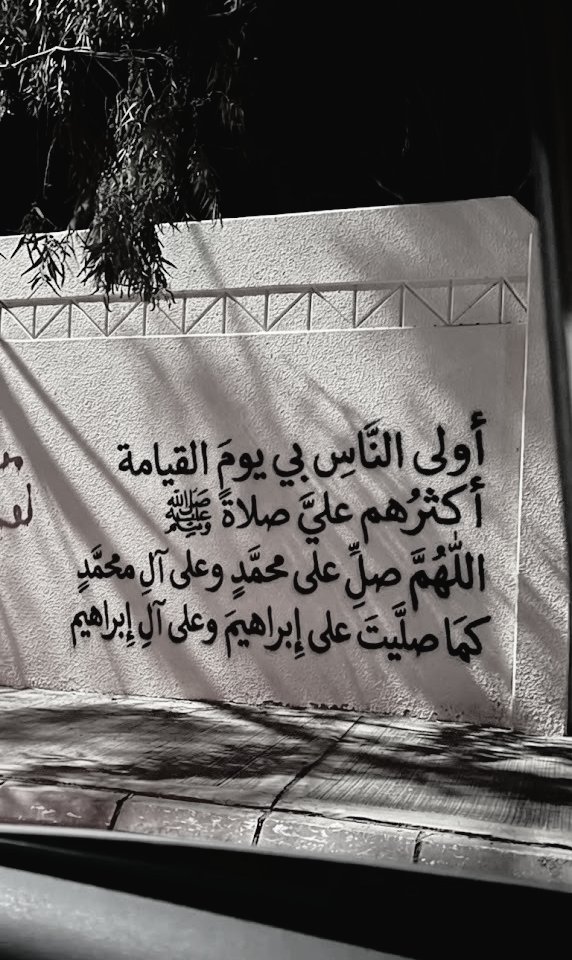 أولى النَّاسِ بي يومَ القيامة
أكثرُهم عليَّ صلاةً ﷺ
اللّهُمَّ صلِّ على محمَّدٍ وعلى آلِ محمَّدٍ
كمَا صلَّيتَ على إبراهيمَ وعلى آلِ إبراهيم